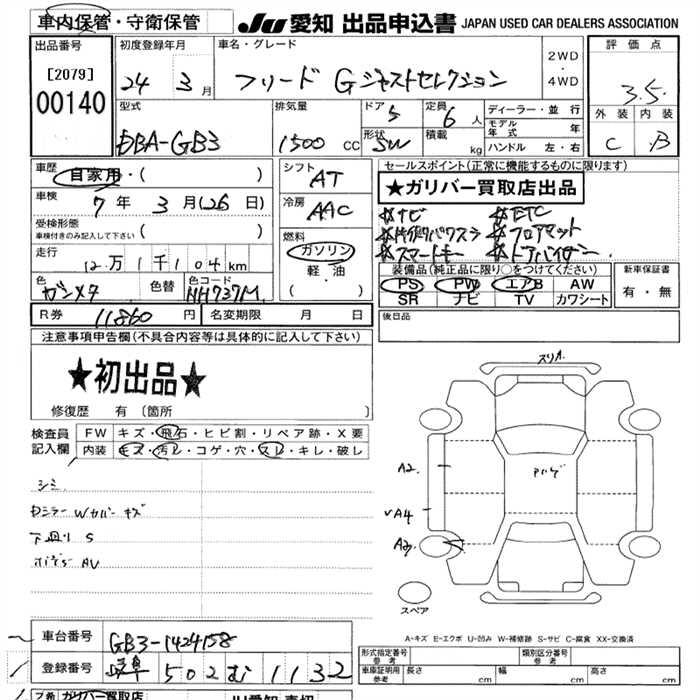 車内保管・守衛保管
JU 愛知 出品申込書 JAPAN USED CAR DEALERS ASSOCIATION
出品番号
[2079]
00140
初度登録年月
24年 3月
車名・グレード
フリード Gジャストセレクション
2WD
・
4WD
評価点
3.5
外装 内装
C B
型式
DBA-GB3
排気量
1500 CC
ドア 5
形状 SW
定員 6人
積載 kg
ディーラー・並行
モデル年式 年
ハンドル 左・右
車歴
自家用・( )
車検
7年 3月(26日)
受検形態
車検付きのみ記入して下さい ( )
走行
12万1千104km
色
ガンメタ
色替
色コード
NH737M
シフト
AT
冷房
AAC
燃料
ガソリン
軽・油
( )
セールスポイント(正常に機能するものに限ります)
★ガリバー買取店出品
ナビ ETC
片側パワスラ フロアマット
スマートキー ドアバイザー
装備品(純正品に限り○をつけてください)
PS PW エアB AW
SR ナビ TV カワシート
新車保証書
有・無
R券 11860円
名変期限 月 日
後日品
注意事項申告欄(不具合内容等は具体的に記入して下さい)
★初出品★
修復歴 有〔箇所 〕
検査員記入欄
FW キズ・飛石・ヒビ割・リペア跡・X要
内装 キズ・汚レ・コゲ・穴・スレ・キレ・破レ
シミ
Dミラー Wカバー キズ
下廻り S
ボデー AU
スリA
A2
A4
A2
アハゲ
スペア
A-キズ E-エクボ U-凹み W-補修跡 S-サビ C-腐食 XX-交換済
車台番号 GB3-1424158
登録番号 岐阜 502 む 1132
形式指定番号 参考
類別区分番号 参考
車庫証明用 参考
長さ cm 幅 cm 高さ cm
ガリバー買取店
JU愛知